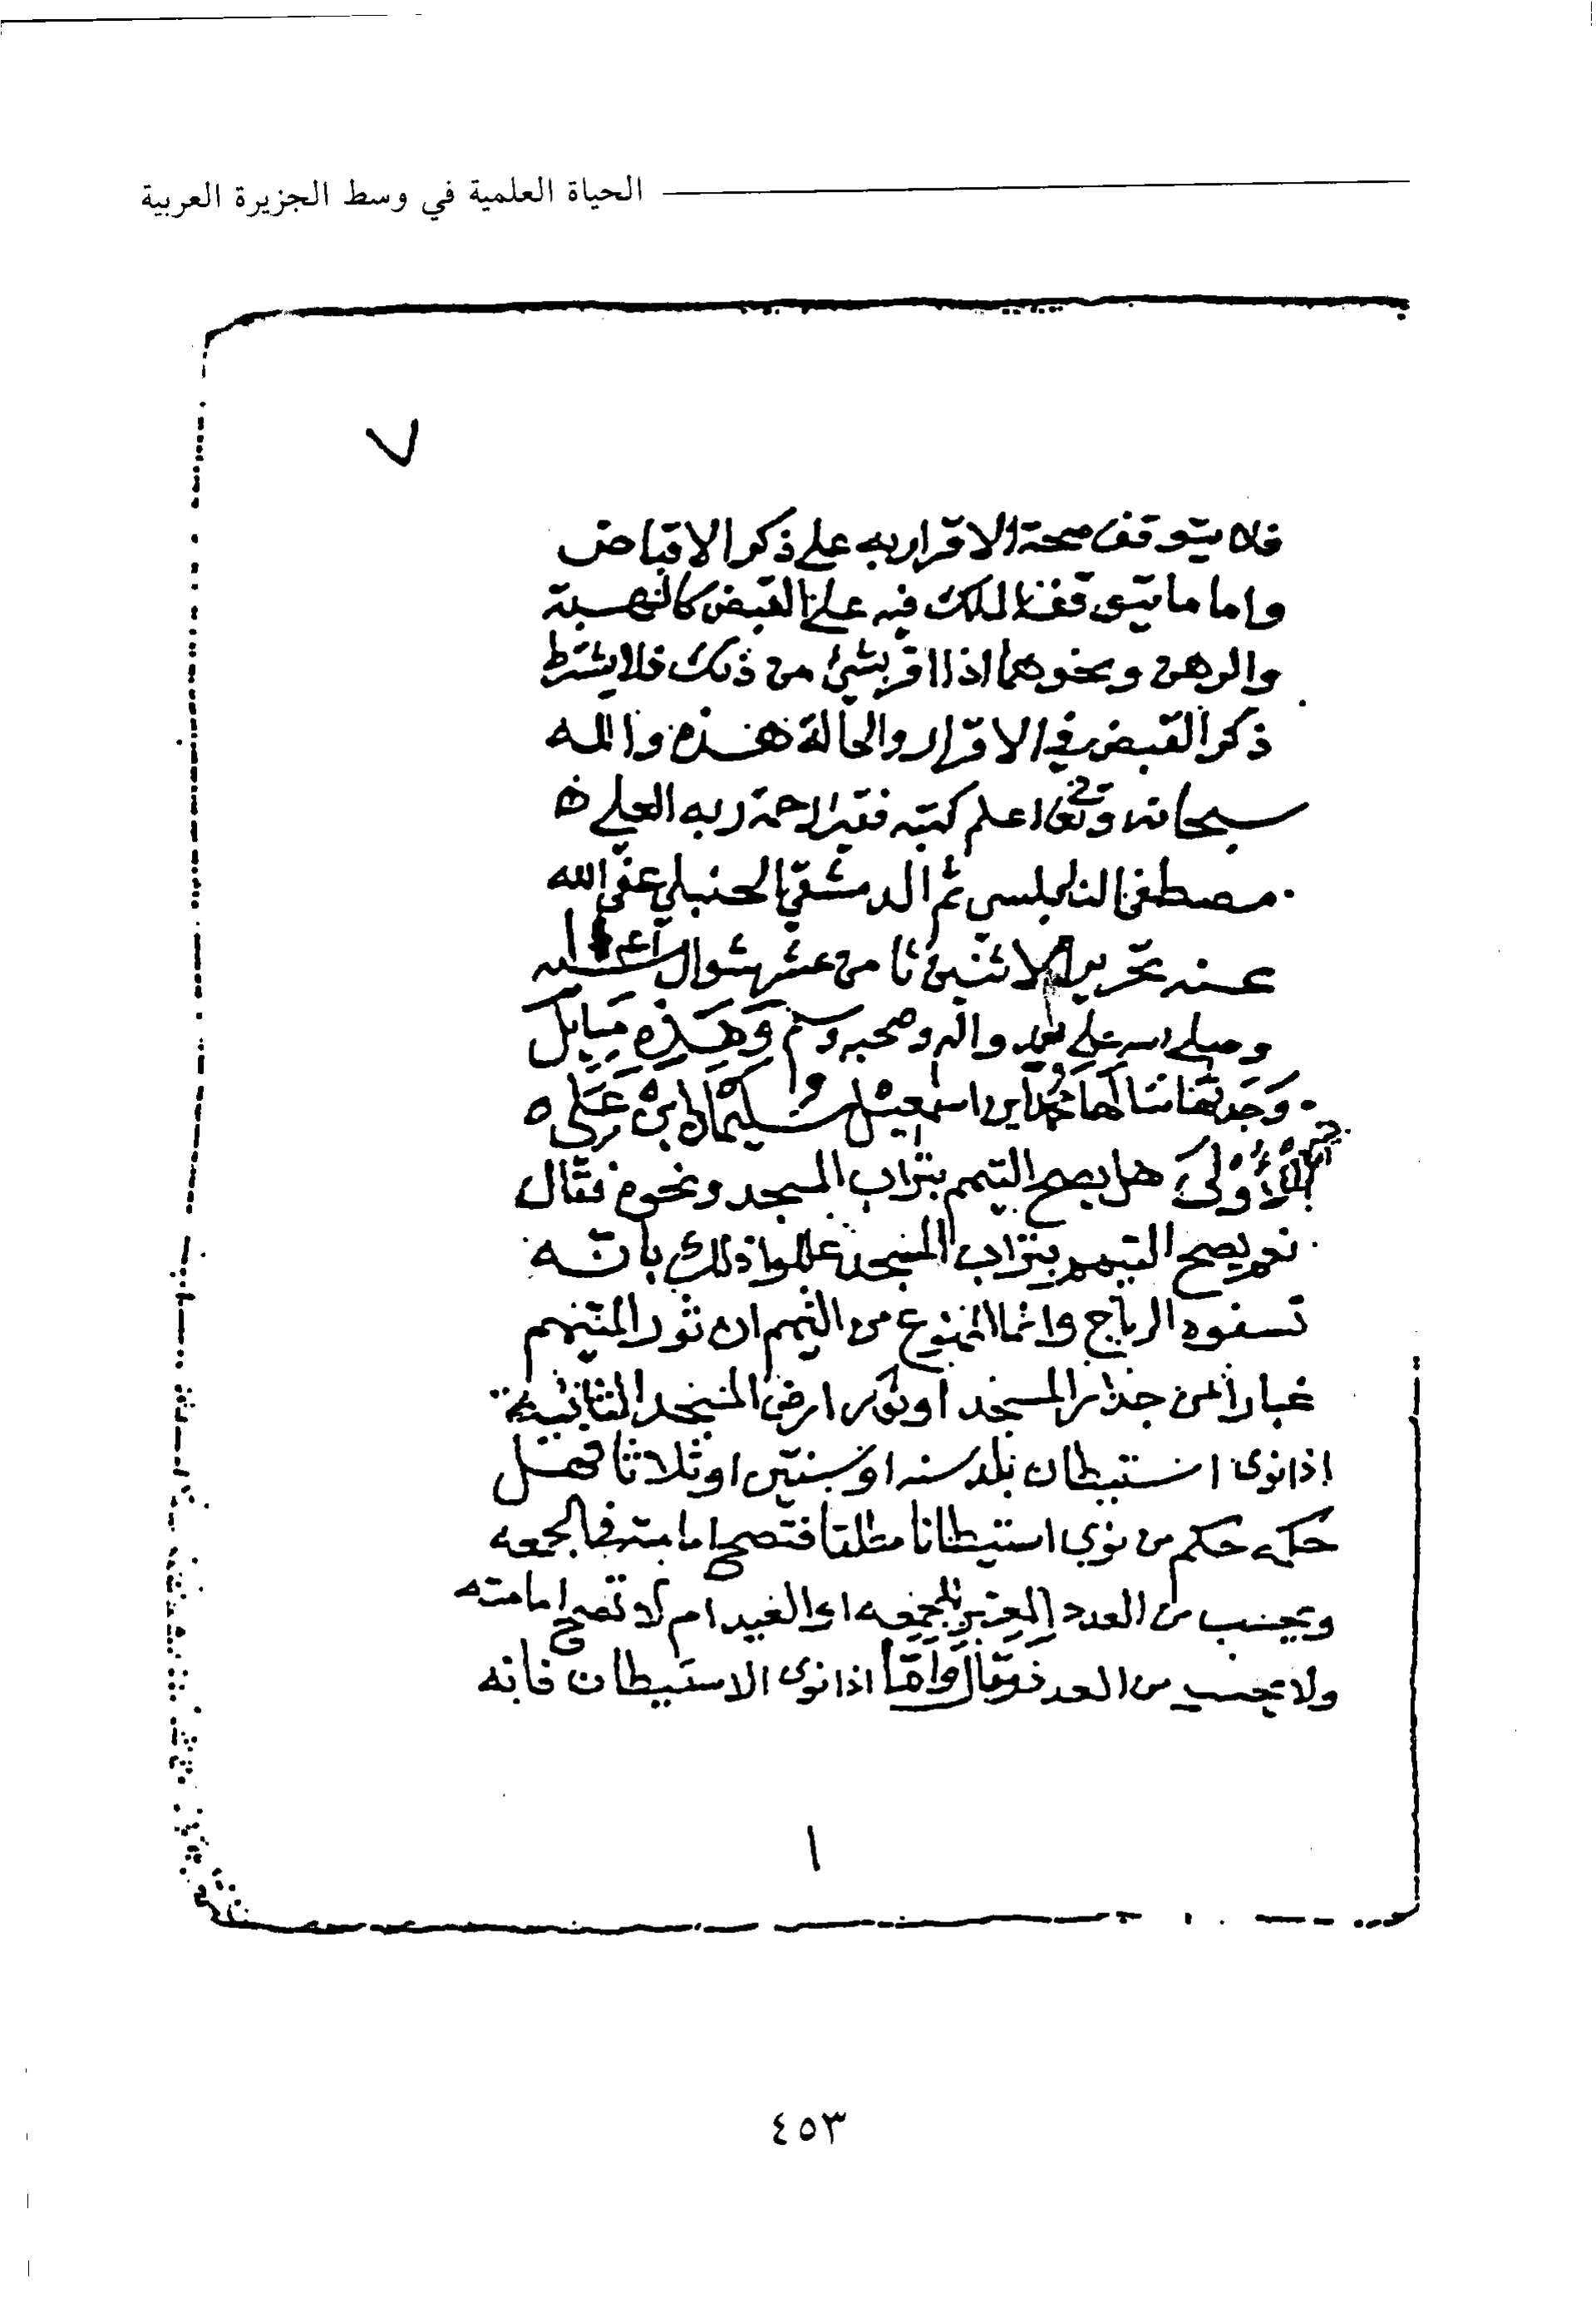 الحياة العلمية في وسط الجزيرة العربية
٧
فلا يتوقف صحة الاقرار به على ذكر الاقباض
واما ما يتوقف الملك فيه على القبض كالهبة
والرهن ونحوهما اذا اقر بشئ من ذلك فلا يشترط
ذكر القبض في الاقرار والحالة هذه والله
سبحانه وتعالى اعلم كتبه فقير لرحمة ربه العلي
مصطفى النابلسي ثم الدمشقي الحنبلي عفى الله
عنه تحرير الاثنين ثامن عشر شوال سنه
وصلى الله على محمد واله وصحبه وسلم وَهَذِه مَسايل
وَجَدتها سَالَها محمد ابن اسمعيل سُليمَان ابن عَلي ه
الأُوْلَى هل يصح التيمم بتراب المسجد ونحوه فقال
نعم يصح التيمم بتراب المسجد عللوا ذلك بانه
تسفوه الرياح وانما الممنوع من التيمم ان يثور المتيمم
غبارا من جدار المسجد او ارض المسجد الثانية
اذا نوى استيطان بلد سنه او سنتين او ثلاثا فهل
حكمه حكم من نوى استيطانا مطلقا فتصح امامته في الجمعه
ويحسب من العدد المعتبر للجمعه او العيد ام لا تصح امامته
ولا يحسب من العدد فَقَال وَأمَّا اذا نوى الاستيطان فانه
١
٤٥٣